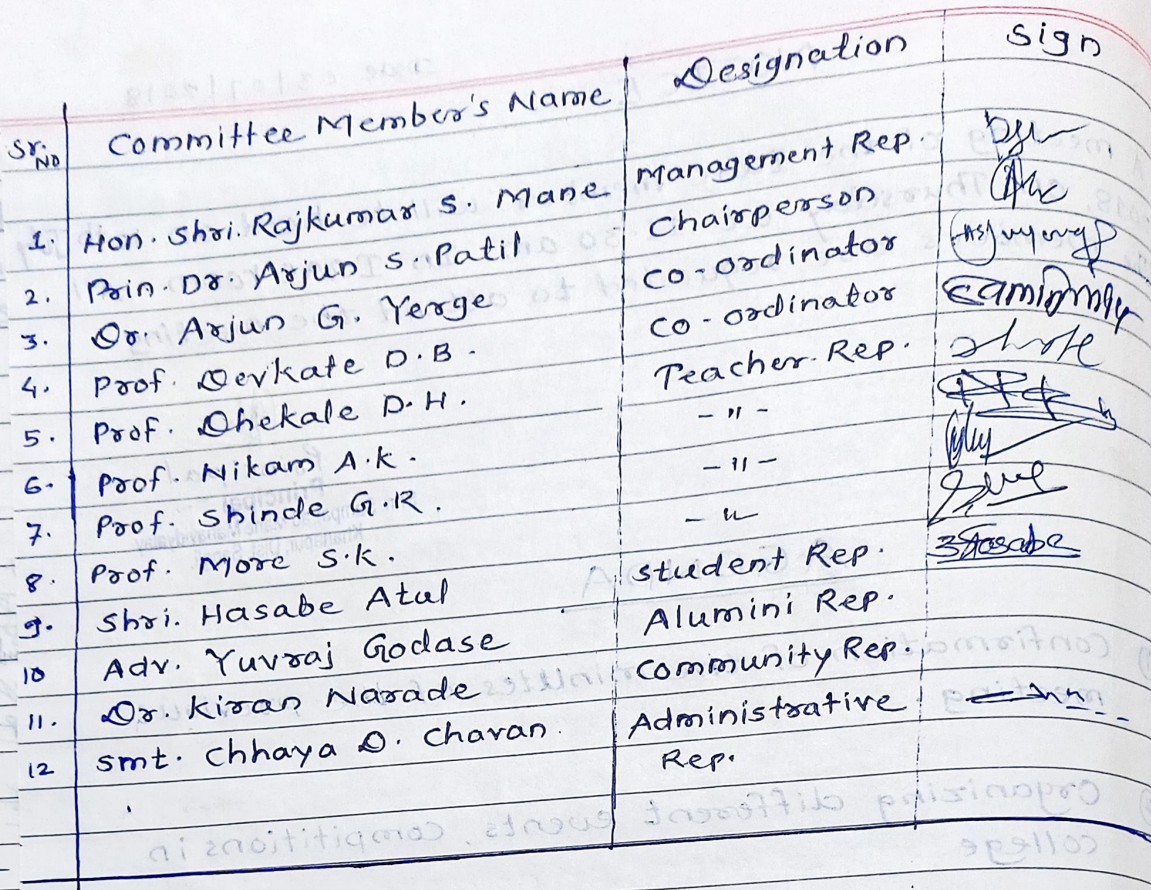 Sr. No Committee Member's Name Designation Sign
1. Hon. Shri. Rajkumar S. Mane Management Rep.
2. Prin. Dr. Arjun S. Patil Chairperson
3. Dr. Arjun G. Yerge Co-ordinator
4. Prof. Devkate D.B. Co-ordinator
5. Prof. Dhekale D.H. Teacher Rep.
6. Prof. Nikam A.K. - " -
7. Prof. Shinde G.R. - " -
8. Prof. More S.K. - " -
9. Shri. Hasabe Atul Student Rep. Hasabe
10 Adv. Yuvraj Godase Alumini Rep.
11. Dr. Kiran Narade Community Rep.
12 Smt. Chhaya D. Chavan. Administrative
Rep.